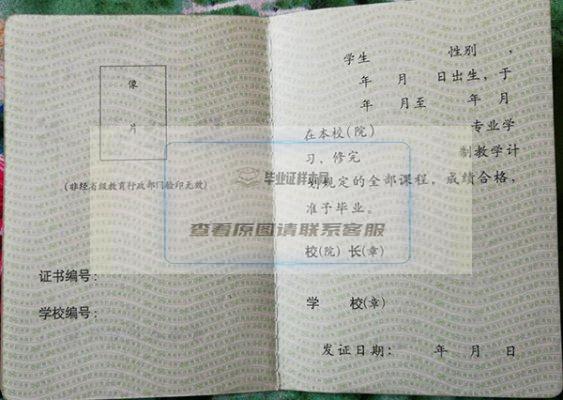 像
片
(非经省级教育行政部门验印无效)
证书编号：
学校编号：
学生 性别 ，
年 月 日出生，于
年 月至 年 月
在本校(院) 专业学
习、修完 制教学计
划规定的全部课程。成绩合格，
准予毕业。
校(院)长(章)
学 校(章)
发证日期： 年 月 日
毕业证样本网
查看原图请联系客服